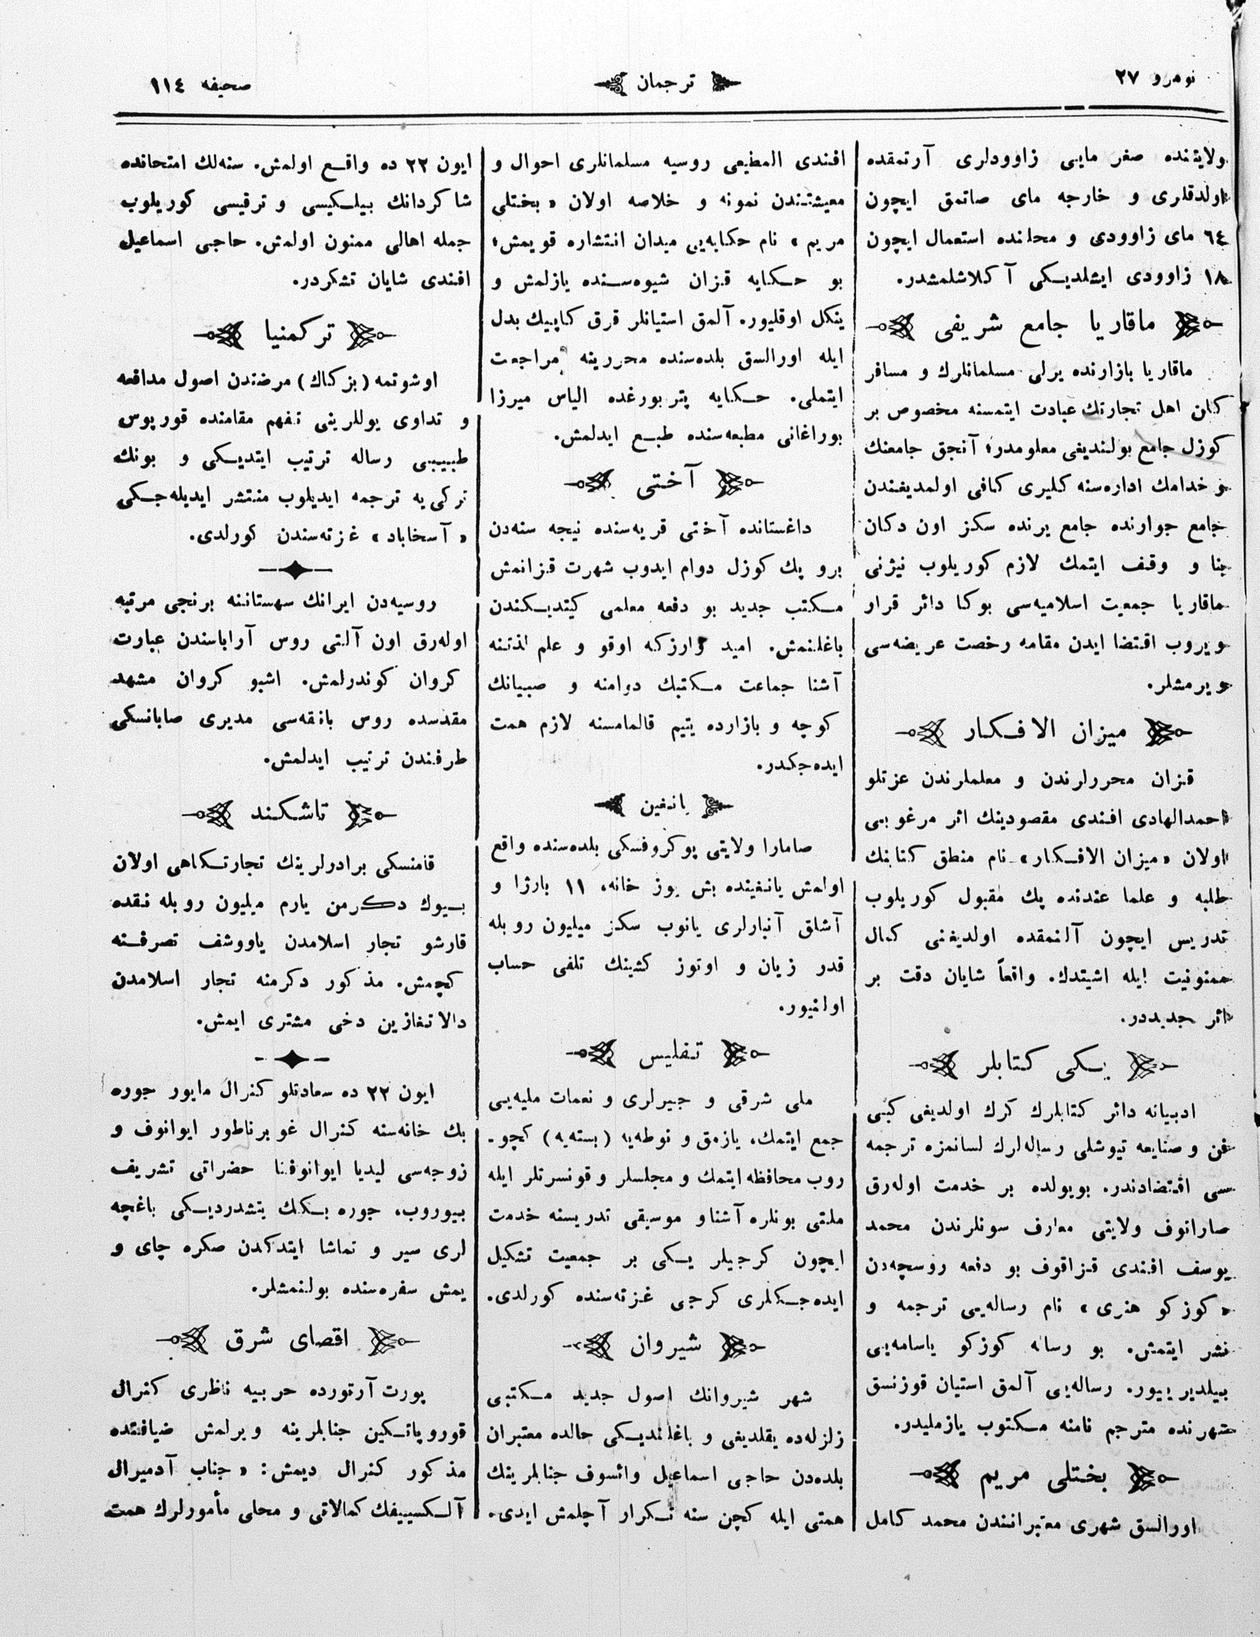 نومرو ٢٧
ترجمان
صحیفه ١١٤
ولایتنده صغر مایی زاوودلری آرتمقده
اولدقلری و خارجه مای صاتمق ایچون
٦٤ مای زاوودی و محلنده استعمال ایچون
١٨ زاوودی ایشلدیکی آکلاشلمشدر.
ماقاریا جامع شریفی
ماقاریا بازارنده یرلی مسلمانلرك و مسافر
کلن اهل تجارتك عبادت ایتمسنه مخصوص بر
کوزل جامع بولندیغی معلومدر؛ آنجق جامعنك
و خدامك اداره‌سنه کلیری کافی اولمدیغندن
جامع جوارنده جامع یرنده سکز اون دکان
بنا و وقف ایتمك لازم کوریلوب نیژنی
ماقاریا جمعیت اسلامیه‌سی بوکا دائر قرار
ویروب اقتضا ایدن مقامه رخصت عریضه‌سی
ویرمشلر.
میزان الافکار
قزان محررلرندن و معلملرندن عزتلو
احمدالهادی افندی مقصودینك اثر مرغوبی
اولان «میزان الافکار» نام منطق کتابنك
طلبه و علما عندنده پك مقبول کوریلوب
تدریس ایچون آلنمقده اولدیغنی کمال
ممنونیت ایله اشیتدك. واقعاً شایان دقت بر
اثر جدیددر.
یکی کتابلر
ادبیانه دائر کتابلرك کرك اولدیغی کبی
فن و صنایعه تیوشلی رساله‌لرك لسانمزه ترجمه
سی اقتضادندر. بویولده بر خدمت اوله‌رق
صارانوف ولایتی معارف سونلرندن محمد
یوسف افندی قزاقوف بو دفعه روسچه‌دن
«کوزکو هنری» نام رساله‌یی ترجمه و
نشر ایتمش. بو رساله کوزکو یاسامه‌یی
بیلدیریور. رساله‌یی آلمق استیان قوزنسق
شهرنده مترجم نامنه مکتوب یازملیدر.
بختلی مریم
اورالسق شهری معتبرانندن محمد کامل
افندی المطیعی روسیه مسلمانلری احوال و
معیشتندن نمونه و خلاصه اولان «بختلی
مریم» نام حکایه‌یی میدان انتشاره قویمش؛
بو حکایه قزان شیوه‌سنده یازلمش و
ینکل اوقلیور. آلمق استیانلر قرق کاپیك بدل
ایله اورالسق بلده‌سنده محررینه مراجعت
ایتملی. حکایه پتربورغده الیاس میرزا
بوراغانی مطبعه‌سنده طبع ایدلمش.
آختی
داغستانده آختی قریه‌سنده نیجه سنه‌دن
برو پك کوزل دوام ایدوب شهرت قزانمش
مکتب جدید بو دفعه معلمی کیتدیکندن
باغلنمش. امید وارزکه اوقو و علم لذتنه
آشنا جماعت مکتبك دوامنه و صبیانك
کوچه و بازارده یتیم قالمامسنه لازم همت
ایده‌جکدر.
یانغین
صامارا ولایتی پوکروفسکی بلده‌سنده واقع
اولمش یانغینده بش یوز خانه، ١١ بارژا و
آشلق آنبارلری یانوب سکز میلیون روبله
قدر زیان و اوتوز کشینك تلفی حساب
اولنیور.
تفلیس
ملی شرقی و جیرلری و نغمات ملیه‌یی
جمع ایتمك، یازمق و نوطه‌یه (بسته‌یه) کچو-
روب محافظه ایتمك و مجلسلر و قونسرتلر ایله
ملتی بونلره آشناو موسیقی تدریسنه خدمت
ایچون کرجیلر یکی بر جمعیت تشکیل
ایده‌جکلری کرجی غزته‌سنده کورلدی.
شیروان
شهر شیروانك اصول جدید مکتبی
زلزله‌ده یقلدیغی و باغلندیکی حالده معتبران
بلده‌دن حاجی اسماعیل وائسوف جنابلرینك
همتی ایله کچن سنه تکرار آچلمش ایدی.
ایون ٢٢ ده واقع اولمش. سنه‌لك امتحانده
شاکردانك بیلکیسی و ترقیسی کوریلوب
جمله اهالی ممنون اولمش. حاجی اسماعیل
افندی شایان تشکردر.
ترکمنیا
اوشوتمه (بزکاك) مرضندن اصول مدافعه
و تداوی یوللرینی تفهم مقامنده قورپوس
طبیبی رساله ترتیب ایتدیکی و بونك
ترکی‌یه ترجمه ایدیلوب منتشر ایدیله‌جکی
«آسخاباد» غزته‌سندن کورلدی.
روسیه‌دن ایرانك سهستاننه برنجی مرتبه
اوله‌رق اون آلتی روس آراباسندن عبارت
کروان کوندرلمش. اشبو کروان مشهد
مقدسده روس بانقه‌سی مدیری صابانسکی
طرفندن ترتیب ایدلمش.
تاشکند
قامنسکی برادرلرینك تجارتکاهی اولان
بیوك دکرمن یارم میلیون روبله نقده
قارشو تجار اسلامدن یاووشف تصرفنه
کچمش. مذکور دکرمنه تجار اسلامدن
دالاتغازین دخی مشتری ایمش.
ایون ٢٢ ده سعادتلو کنرال مایور جوره
بك خانه‌سنه کنرال غوبرناطور ایوانوف و
زوجه‌سی لیدیا ایوانوفنا حضراتی تشریف
بیوروب، جوره بکك یتشدردیکی باغچه
لری سیر و تماشا ایتدکدن صکره چای و
یمش سفره‌سنده بولنمشلر.
اقصای شرق
پورت آرتورده حربیه ناظری کنرال
قوروپاتکین جنابلرینه ویرلمش ضیافتده
مذکور کنرال دیمش: «جناب آدمیرال
آلکسییفك کمالاتی و محلی مأمورلرك همت